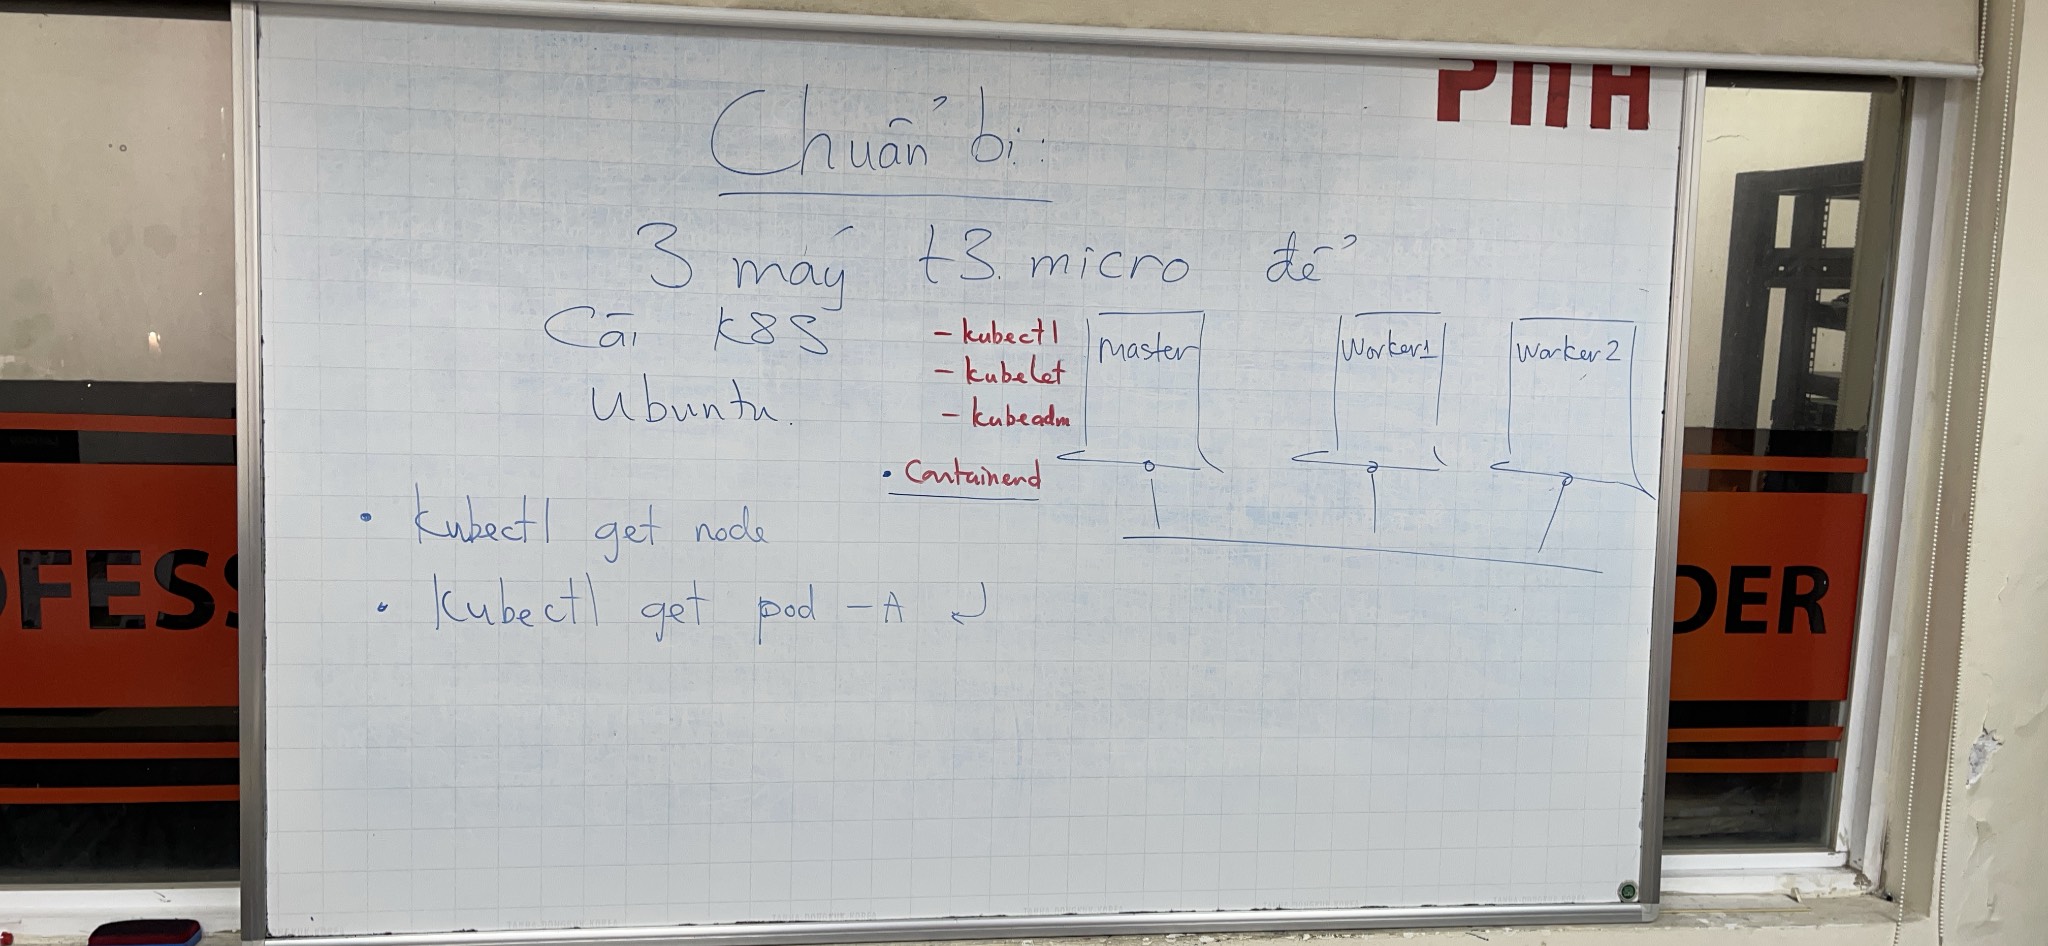 PNA
Chuẩn bị:
3 máy t3.micro để
Cài K8S
Ubuntu.
- kubectl
- kubelet
- kubeadm
• Containerd
master
Worker1
Worker2
• Kubectl get node
• Kubectl get pod -A ↵
OFESS
DER